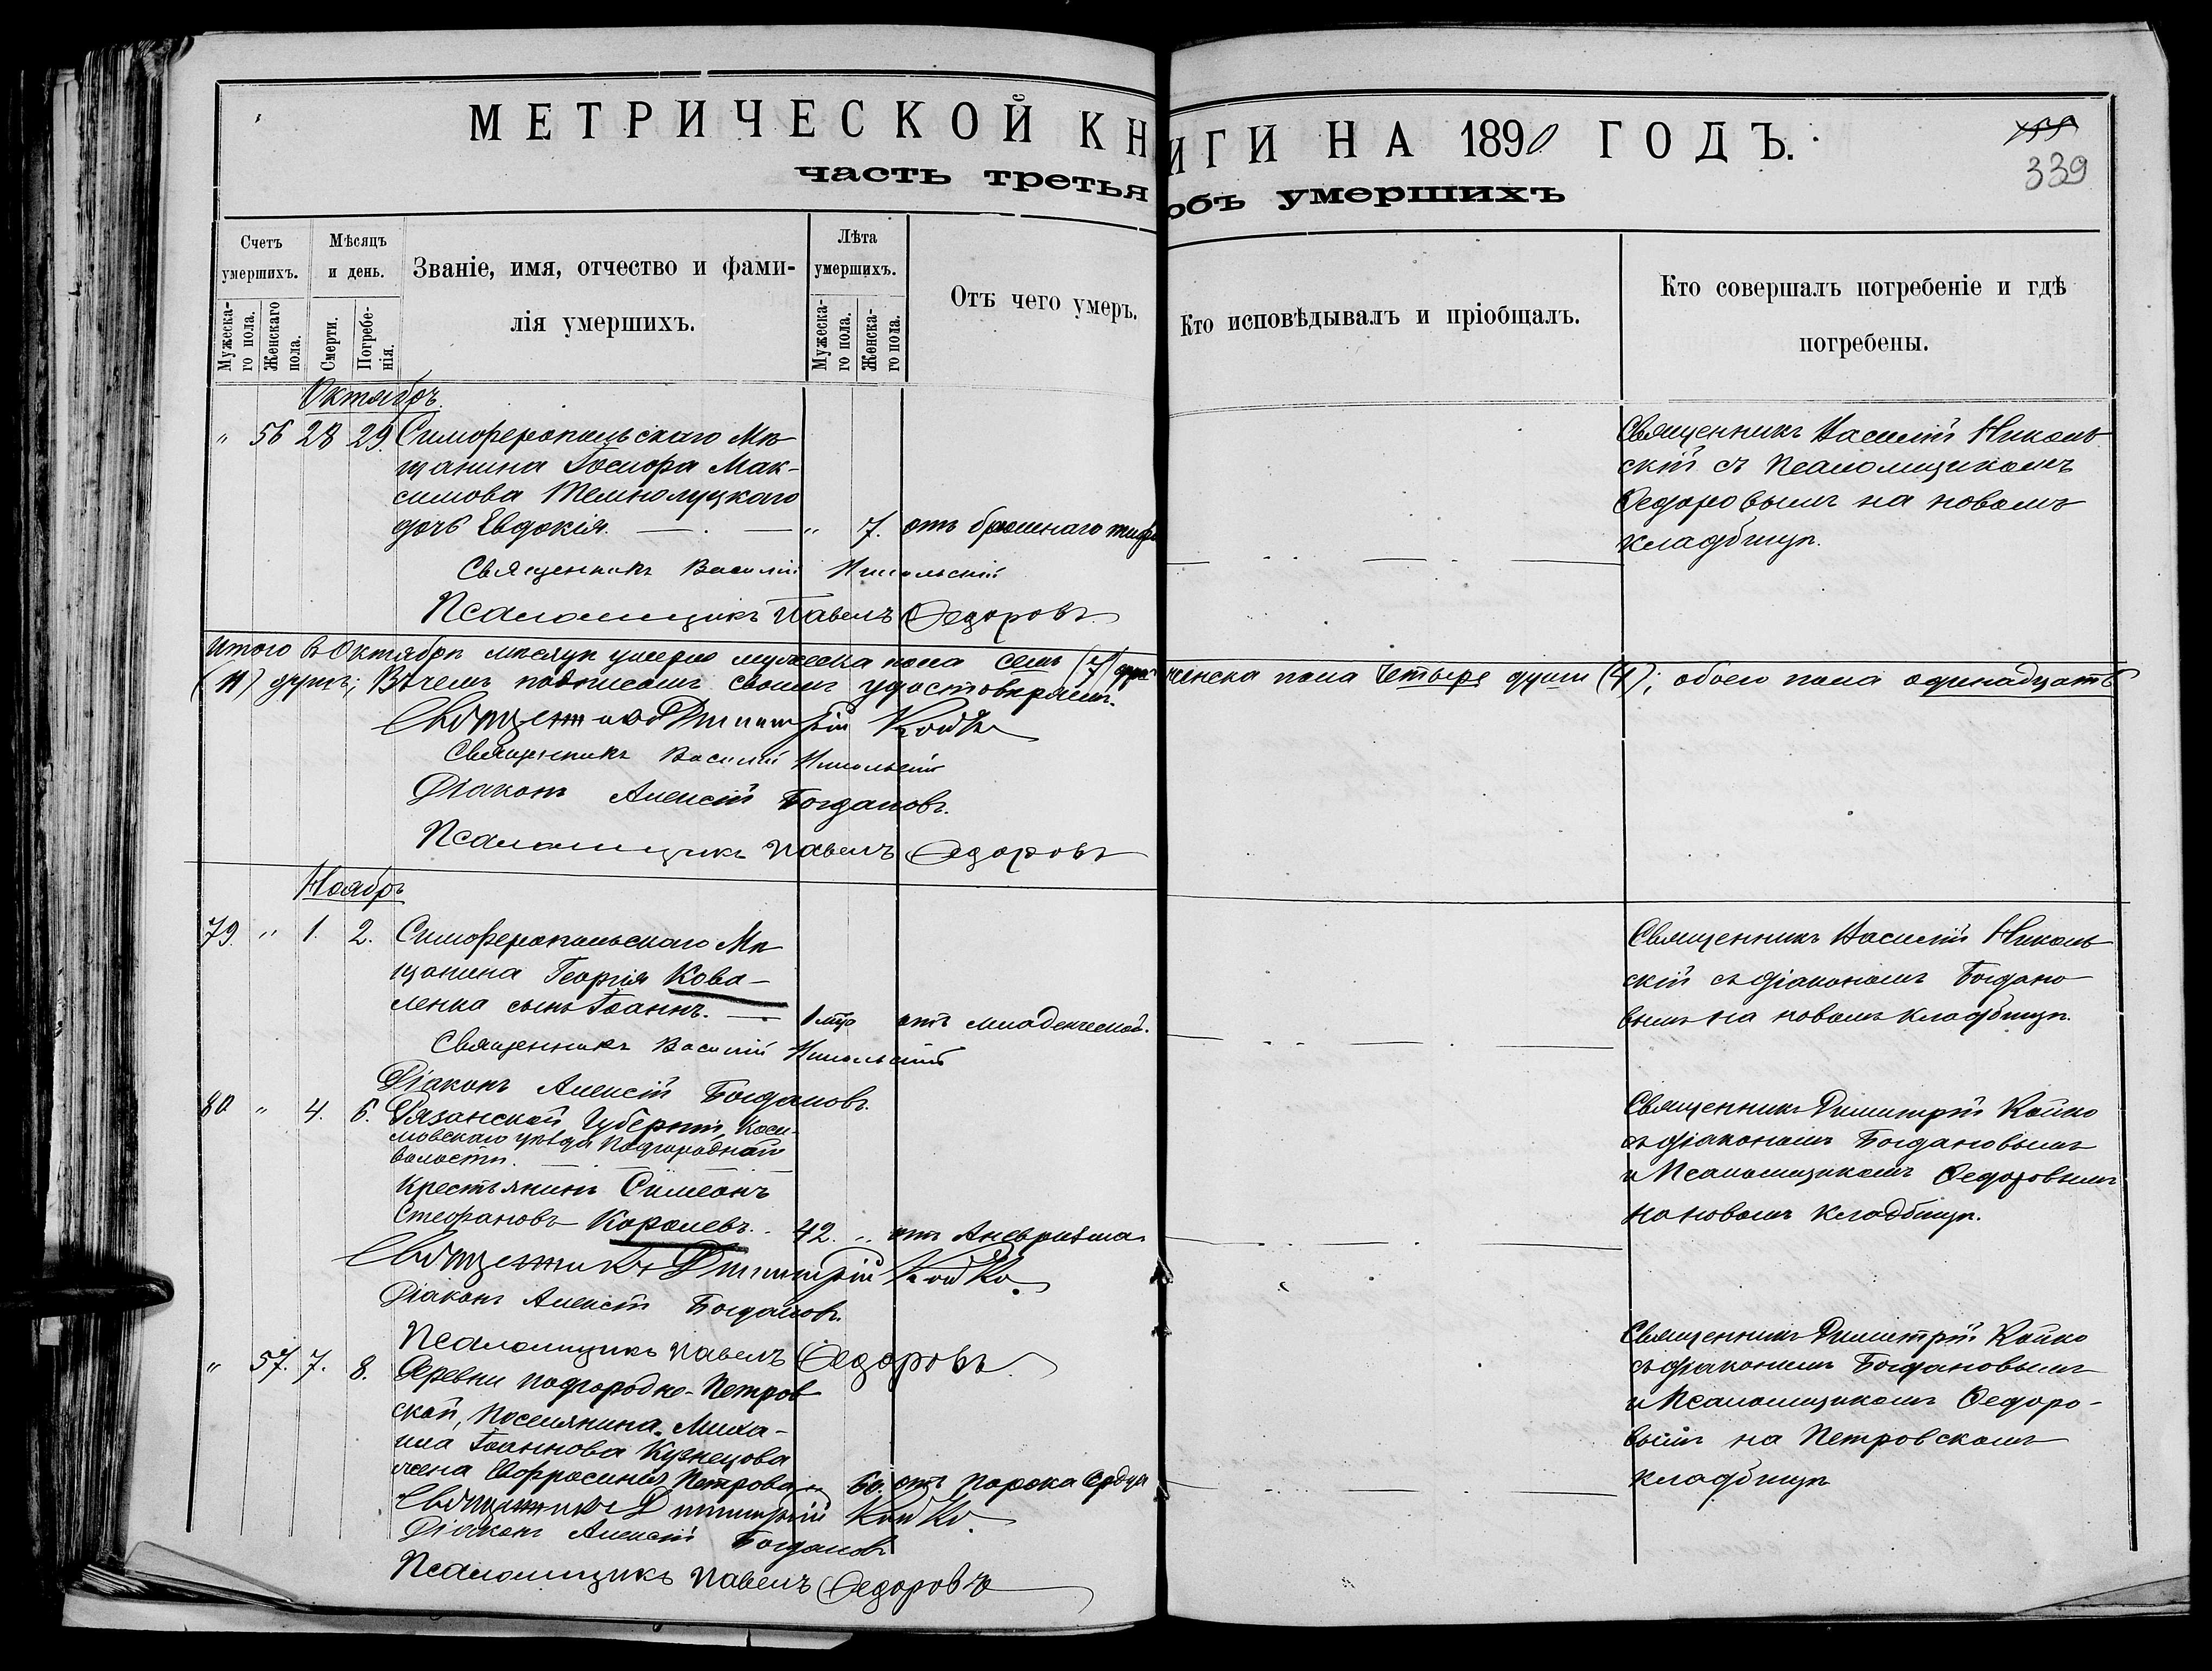 МЕТРИЧЕСКОЙ КНИГИ НА 1890 ГОДЪ.
339
часть третья объ умершихъ
Счетъ умершихъ.
Мужеска-го пола.
Женскаго пола.
Мѣсяцъ и день.
Смерти.
Погребе-нія.
Званіе, имя, отчество и фами-
лія умершихъ.
Лѣта умершихъ.
Мужеска-го пола.
Женска-го пола.
Отъ чего умеръ.
Кто исповѣдывалъ и пріобщалъ.
Кто совершалъ погребеніе и гдѣ
погребены.
Октябрь.
" 56 28 29. Симферопольскаго Мѣ-
щанина Іосифа Мак-
симова Темнолуцкаго
дочь Евдокія. " 7. отъ брюшнаго тифа
Священникъ Василій Николь-
скій съ Псаломщикомъ
Федоровымъ на новомъ
кладбищѣ.
Священникъ Василій Никольскій
Псаломщикъ Павелъ Федоровъ
Итого въ Октябрѣ мѣсяцѣ умерло мужеска пола семь (7) душъ женска пола четыре души (4); обоего пола одинадцать
(11) душъ; Въ чемъ подписомъ своимъ удостовѣряемъ.
Священникъ Димитрій Койко
Священникъ Василій Никольскій
Діаконъ Алексій Богдановъ.
Псаломщикъ Павелъ Федоровъ
Ноябрь
79. " 1. 2. Симферопольскаго Мѣ-
щанина Георгія Кова-
ленка сынъ Іоаннъ. 1 лѣто отъ младенческой.
Священникъ Василій Николь-
скій съ діакономъ Богдано-
вымъ на новомъ кладбищѣ.
Священникъ Василій Никольскій
Діаконъ Алексій Богдановъ.
80 " 4. 6. Рязанской Губерніи, Каси-
мовскаго уѣзда Подгородной
волости.
Крестьянинъ Симеонъ
Стефановъ Королевъ. 42. " отъ Аневризма
Священникъ Димитрій Койко
съ діакономъ Богдановымъ
и Псаломщикомъ Федоровымъ
на новомъ кладбищѣ.
Священникъ Димитрій Койко.
Діаконъ Алексій Богдановъ.
Псаломщикъ Павелъ Федоровъ
" 57. 7. 8. Деревни Подгородне-Петров
ской, Поселянина Миха-
ила Іоаннова Кузнецова
жена Евфросинія Петрова " 60. отъ порока сердца
Священникъ Димитрій Койко
съ діакономъ Богдановымъ
и Псаломщикомъ Федоро-
вымъ на Петровскомъ
кладбищѣ
Священникъ Димитрій Койко.
Діаконъ Алексій Богдановъ
Псаломщикъ Павелъ Федоровъ